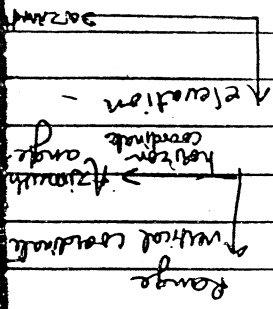 Range
vertical coordinate
Azimuth
horizon angle
coordinate
elevation -